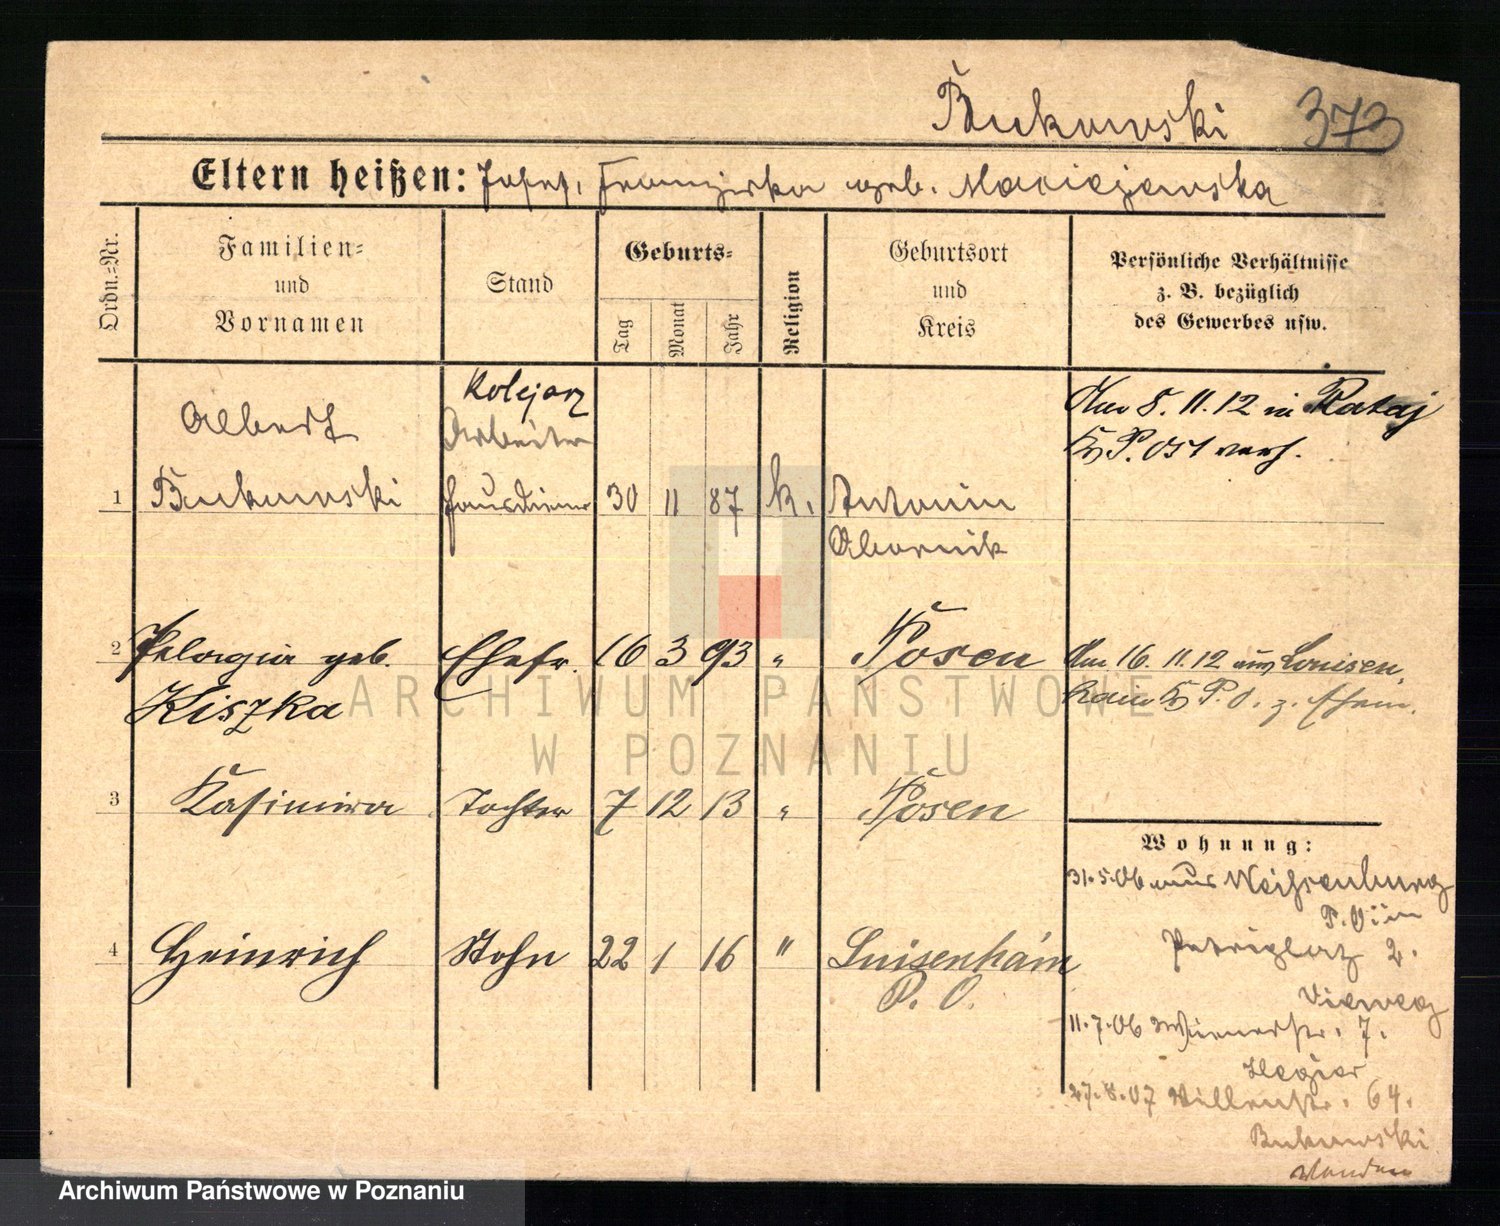 Bukowski 373
Eltern heißen: Josef, Franziska geb. Maciejewska
Ordn.-Nr.
Familien-
und
Vornamen
Stand
Geburts-
Tag
Monat
Jahr
Religion
Geburtsort
und
Kreis
Persönliche Verhältnisse
z. B. bezüglich
des Gewerbes usw.
Albert
Kolejarz
Arbeiter
1 Bukowski Hausdiener 30 11 87 k. Antonin
Obornik
Am 8. 11. 12 in Rataj
Kr P. Ost verh.
2 Pelagia geb. Ehefr. 16 3 93 " Posen
Kiszka
Am 16. 11. 12 aus Louisen-
hain Kr P. O. z. Ehem.
3 Kasimira Tochter 7 12 13 " Posen
4 Heinrich Sohn 22 1 16 " Luisenhain
P. O.
Wohnung:
31.5.06 aus Weissenburg
P. O.
Petriplatz 2.
Vieweg
11.7.06 7.
27.8.07 64.
Bukowski
ARCHIWUM PAŃSTWOWE
W POZNANIU
Archiwum Państwowe w Poznaniu